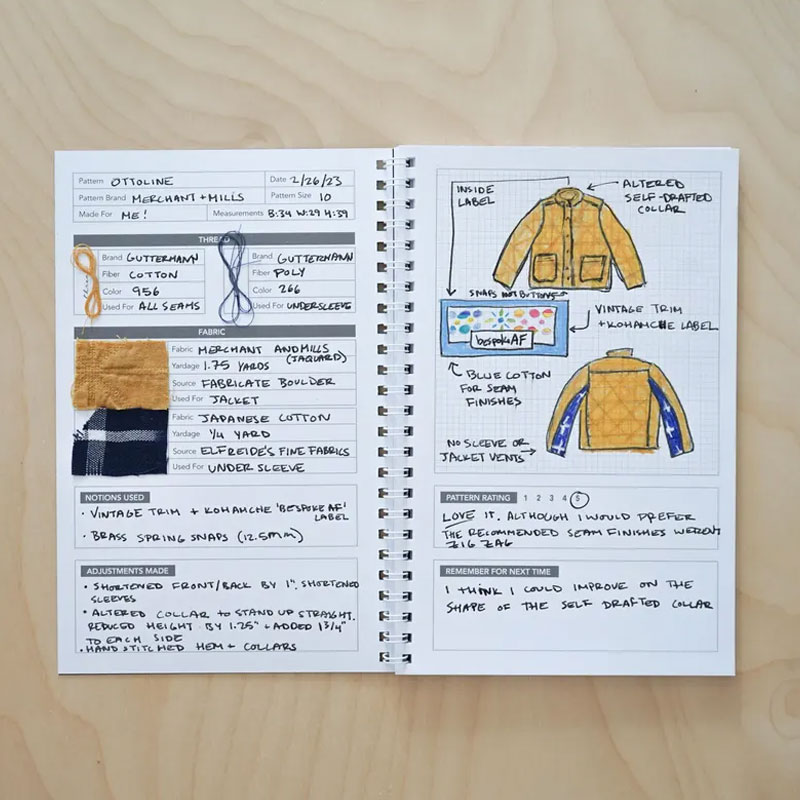 Pattern OTTOLINE Date 2/26/23
Pattern Brand MERCHANT + MILLS Pattern Size 10
Made For ME! Measurements B:34 W:29 H:39
THREAD
Brand GUTTERMANN Brand GUTTERMANN
Fiber COTTON Fiber POLY
Color 956 Color 266
Used For ALL SEAMS Used For UNDERSLEEVE
FABRIC
Fabric MERCHANT AND MILLS
(JAQUARD)
Yardage 1.75 YARDS
Source FABRICATE BOULDER
Used For JACKET
Fabric JAPANESE COTTON
Yardage 1/4 YARD
Source ELFREIDE'S FINE FABRICS
Used For UNDER SLEEVE
NOTIONS USED
• VINTAGE TRIM + KOHMACHE 'BESPOKE AF'
LABEL
• BRASS SPRING SNAPS (12.5mm)
ADJUSTMENTS MADE
• SHORTENED FRONT/BACK BY 1". SHORTENED
SLEEVES
• ALTERED COLLAR to STAND UP STRAIGHT.
REDUCED HEIGHT BY 1.25" + ADDED 1 3/4"
TO EACH SIDE
• HAND STITCHED HEM + COLLARS
INSIDE
LABEL
ALTERED
SELF-DRAFTED
COLLAR
SNAPS NOT BUTTONS
bespokeAF
VINTAGE TRIM
+ KOHMACHE LABEL
BLUE COTTON
FOR SEAM
FINISHES
NO SLEEVE OR
JACKET VENTS
PATTERN RATING 1 2 3 4 5
LOVE IT. ALTHOUGH I WOULD PREFER
THE RECOMMENDED SEAM FINISHES WEREN'T
ZIG ZAG
REMEMBER FOR NEXT TIME
I THINK I COULD IMPROVE ON THE
SHAPE OF THE SELF DRAFTED COLLAR